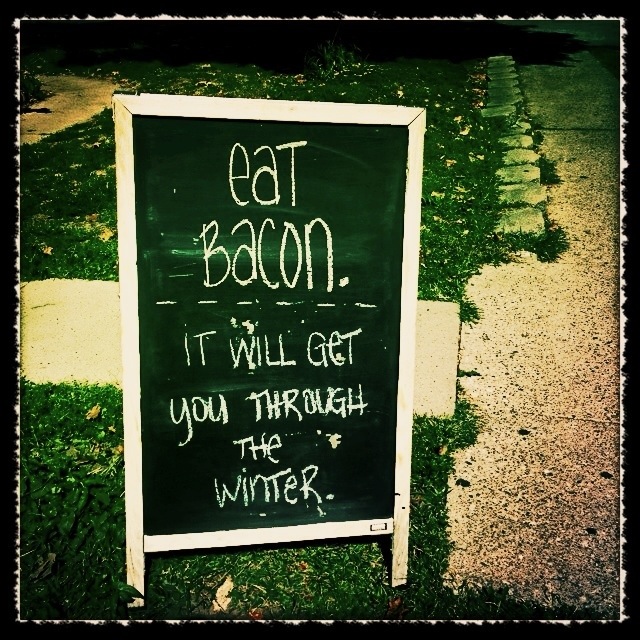 eaT
Bacon.
iT WiLL GeT
you THROUGH
THe
WinTeR.